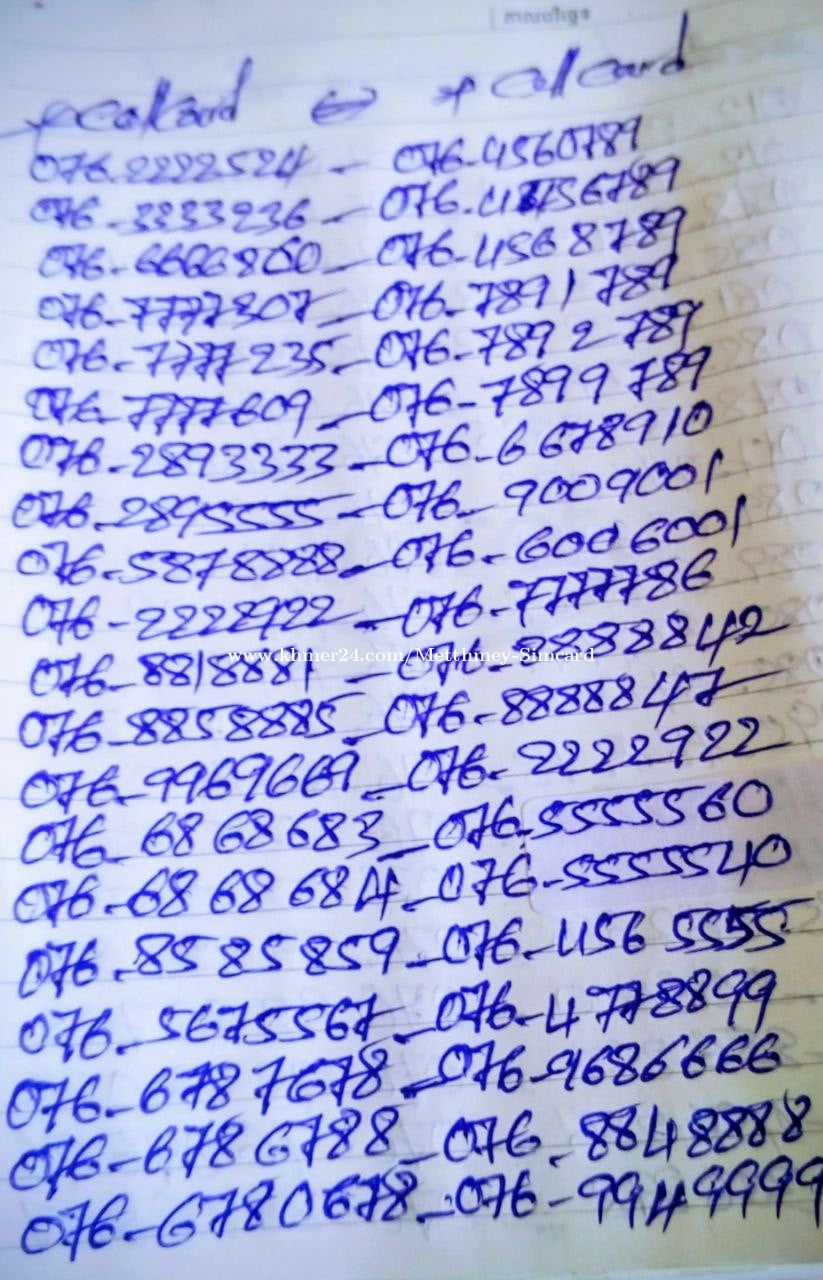 កាលបរិច្ឆេទ
* Cellcard ↔ * Cellcard
076-2222524 - 076-4560789
076-3333236 - 076-43456789
076-6666800 - 076-4568789
076-7777307 - 076-7891789
076-7777235 - 076-7892789
076-7777609 - 076-7899789
076-2893333 - 076-6678910
076-2895555 - 076-9009001
076-5878888 - 076-6006001
076-2222922 - 076-7777786
076-8818881 - 076-8888842
076-8858885 - 076-8888847
076-9969669 - 076-2222922
076-6868683 - 076-5555560
076-6868684 - 076-5555540
076-8585859 - 076-4565555
076-5675567 - 076-4778899
076-6787678 - 076-9686666
076-6786788 - 076-8848888
076-6780678 - 076-9949999
www.khmer24.com/Metthmey-Simcard